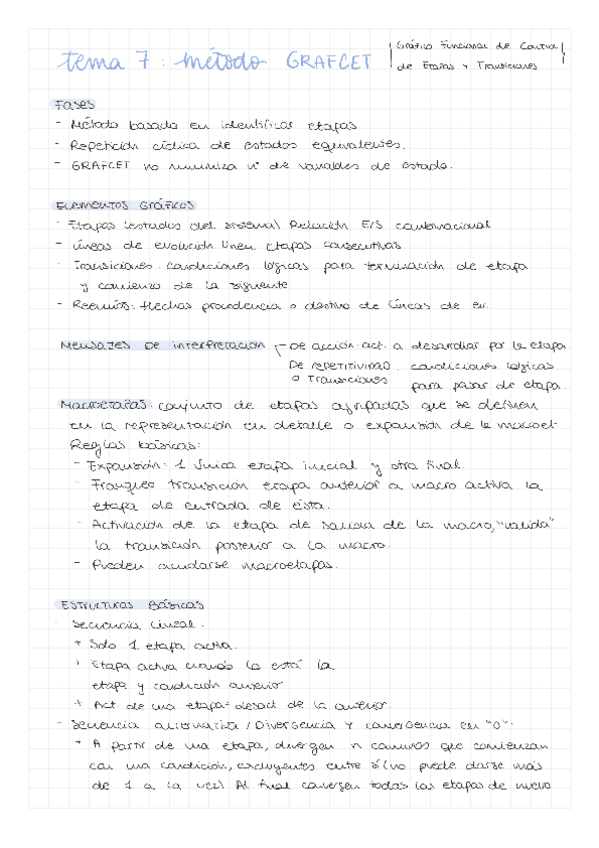 tema 7: método GRAFCET
Gráfico Funcional de Control
de Etapas y Transiciones
Fases
- Método basado en identificar etapas
- Repetición cíclica de estados equivalentes.
- GRAFCET no minimiza nº de variables de estado.
Elementos Gráficos
- Etapas (estados del sistema) Relación E/S combinacional
- Líneas de evolución unen etapas consecutivas
- Transiciones. condiciones lógicas para terminación de etapa
y comienzo de la siguiente
- Reenvíos: flechas procedencia o destino de líneas de ev.
Mensajes de interpretación
De acción: act. a desarrollar por la etapa
De repetitividad
o transiciones
condiciones lógicas
para pasar de etapa.
Macroetapas: conjunto de etapas agrupadas que se definen
en la representación en detalle o expansión de la macroet.
Reglas básicas:
- Expansión: 1 única etapa inicial y otra final.
- Franqueo transición etapa anterior a macro activa la
etapa de entrada de ésta.
- Activación de la etapa de salida de la macro, "valida"
la transición posterior a la macro.
- Pueden anidarse macroetapas.
Estructuras Básicas
- Secuencia lineal.
+ Solo 1 etapa activa.
+ Etapa activa cuando la está la
etapa y condición anterior
+ Act. de una etapa = desact de la anterior.
- Secuencia alternativa / Divergencia y convergencia en "O".
+ A partir de una etapa, divergen n caminos que comienzan
con una condición, excluyentes entre sí (no puede darse más
de 1 a la vez) Al final convergen todas las etapas de nuevo